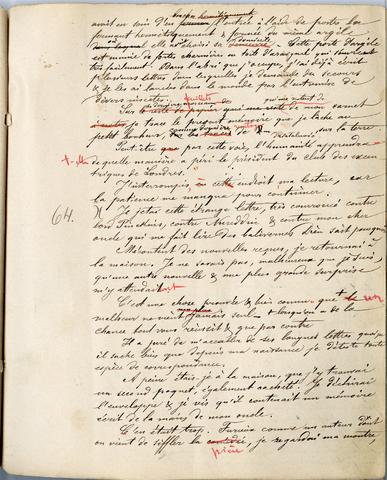 avait eu soin d'en l'entrée à l'aide de
fermant hermétiquement & formée du même argile
elle a choisi sa demeure. Cette porte d'argile
est munie de petites charnières en soie d'araignée qui
très facilement. Dans l'abri que j'occupe, j'ai déjà écrit
plusieurs lettres dans lesquelles je demande du secours
& je les ai lancées dans le monde par l'entremise de
divers insectes.
Sur feuillets de mon carnet
je trace le présent mémoire que je tâche au
petit bonheur, sur la terre
Peut-être que par cette voie, l'humanité apprendra
de quelle manière a péri le président du club des excen-
triques de Londres.
J'interrompis en cet endroit ma lecture, car
la patience me manqua pour continuer.
64. Je jetai cette étrange lettre, très courroucé contre
lord Puckins, contre & contre mon cher
oncle qui me fait lire des balivernes dieu sait pourquoi
Mécontent des nouvelles reçues, je retournai à
la maison. Je ne savais pas, malheureux que je suis,
qu'une autre nouvelle & une plus grande surprise
m'y attendait
C'est une chose prouvée & bien connue que le
malheur ne vient jamais seul & lorsqu'on a de la
chance tout vous réussit & que par contre
Il a juré de m'accabler de ses longues lettres que,
il sache bien que depuis ma naissance, je déteste toute
espèce de correspondance.
A peine étais-je à la maison, que j'y trouvai
un second paquet, également cacheté. Je déchirai
l'enveloppe & je vis qu'il contenait un mémoire
écrit de la main de mon oncle.
C'en était trop. Furieux comme un auteur dont
on vient de siffler la comédie, je regardai ma montre,
pièce